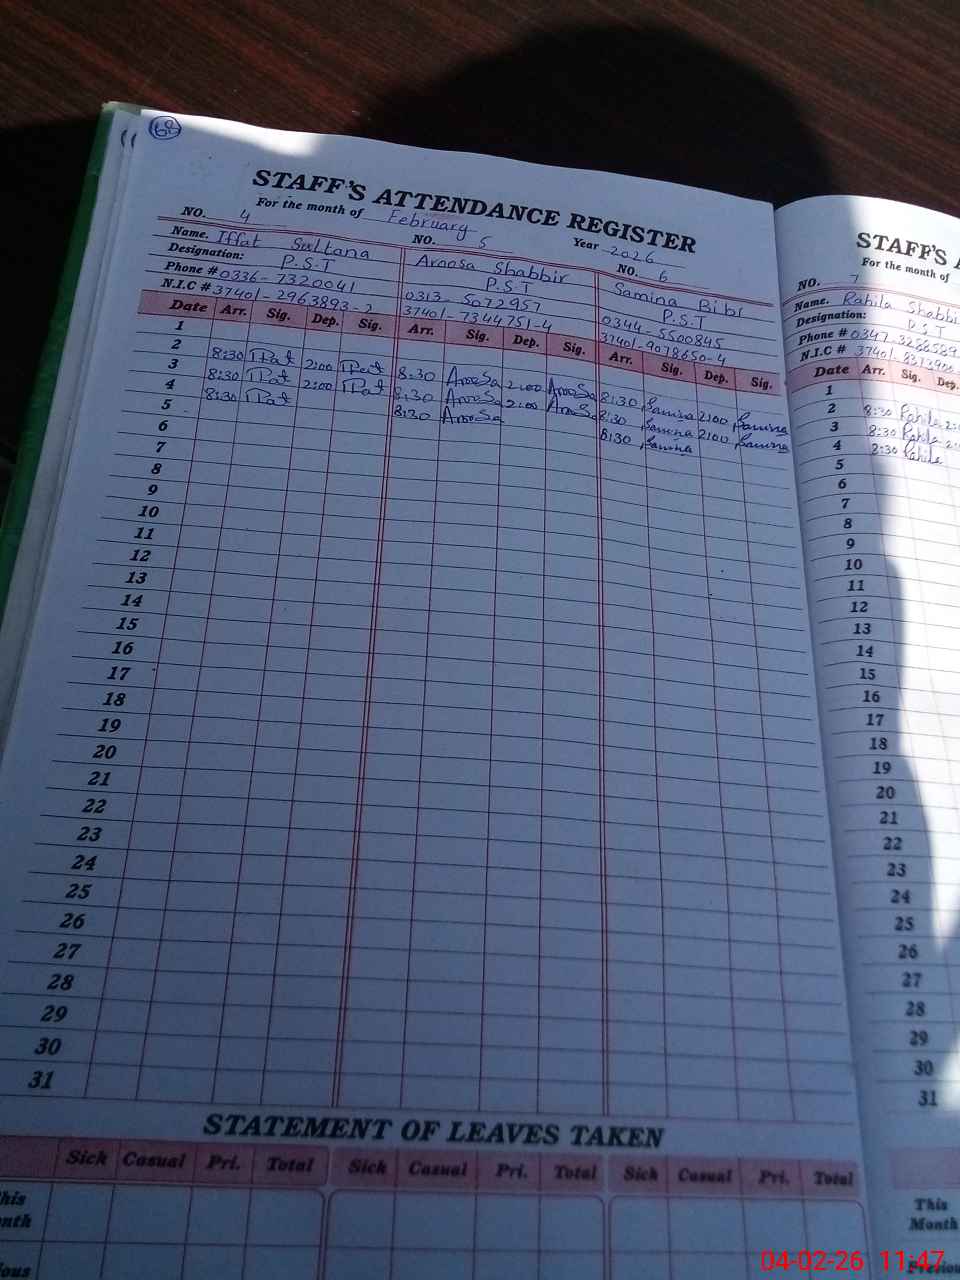 68
STAFF'S ATTENDANCE REGISTER
For the month of February Year 2026
NO. 4 NO. 5 NO. 6
Name. Iffat Sultana Aroosa Shabbir Samina Bibi
Designation: P.S.T P.S.T P.S.T
Phone # 0336-7320041 0313-5072957 0344-5500845
N.I.C # 37401-2963893-2 37401-7344751-4 37401-9078650-4
Date Arr. Sig. Dep. Sig. Arr. Sig. Dep. Sig. Arr. Sig. Dep. Sig.
1
2 8:30 Iffat 2:00 Iffat 8:30 Aroosa 2:00 Aroosa 8:30 Samina 2:00 Samina
3 8:30 Iffat 2:00 Iffat 8:30 Aroosa 2:00 Aroosa 8:30 Samina 2:00 Samina
4 8:30 Iffat 8:30 Aroosa 8:30 Samina
5
6
7
8
9
10
11
12
13
14
15
16
17
18
19
20
21
22
23
24
25
26
27
28
29
30
31
STATEMENT OF LEAVES TAKEN
Sick Casual Pri. Total Sick Casual Pri. Total Sick Casual Pri. Total
STAFF'S
For the month of
NO. 7
Name. Rahila Shabbi
Designation: P.S.T
Phone # 0347-3288589
N.I.C # 37401-
Date Arr. Sig. Dep.
1
2 8:30 Rahila
3 8:30 Rahila
4 8:30 Rahila
5
6
7
8
9
10
11
12
13
14
15
16
17
18
19
20
21
22
23
24
25
26
27
28
29
30
31
This
Month
04-02-26 11:47